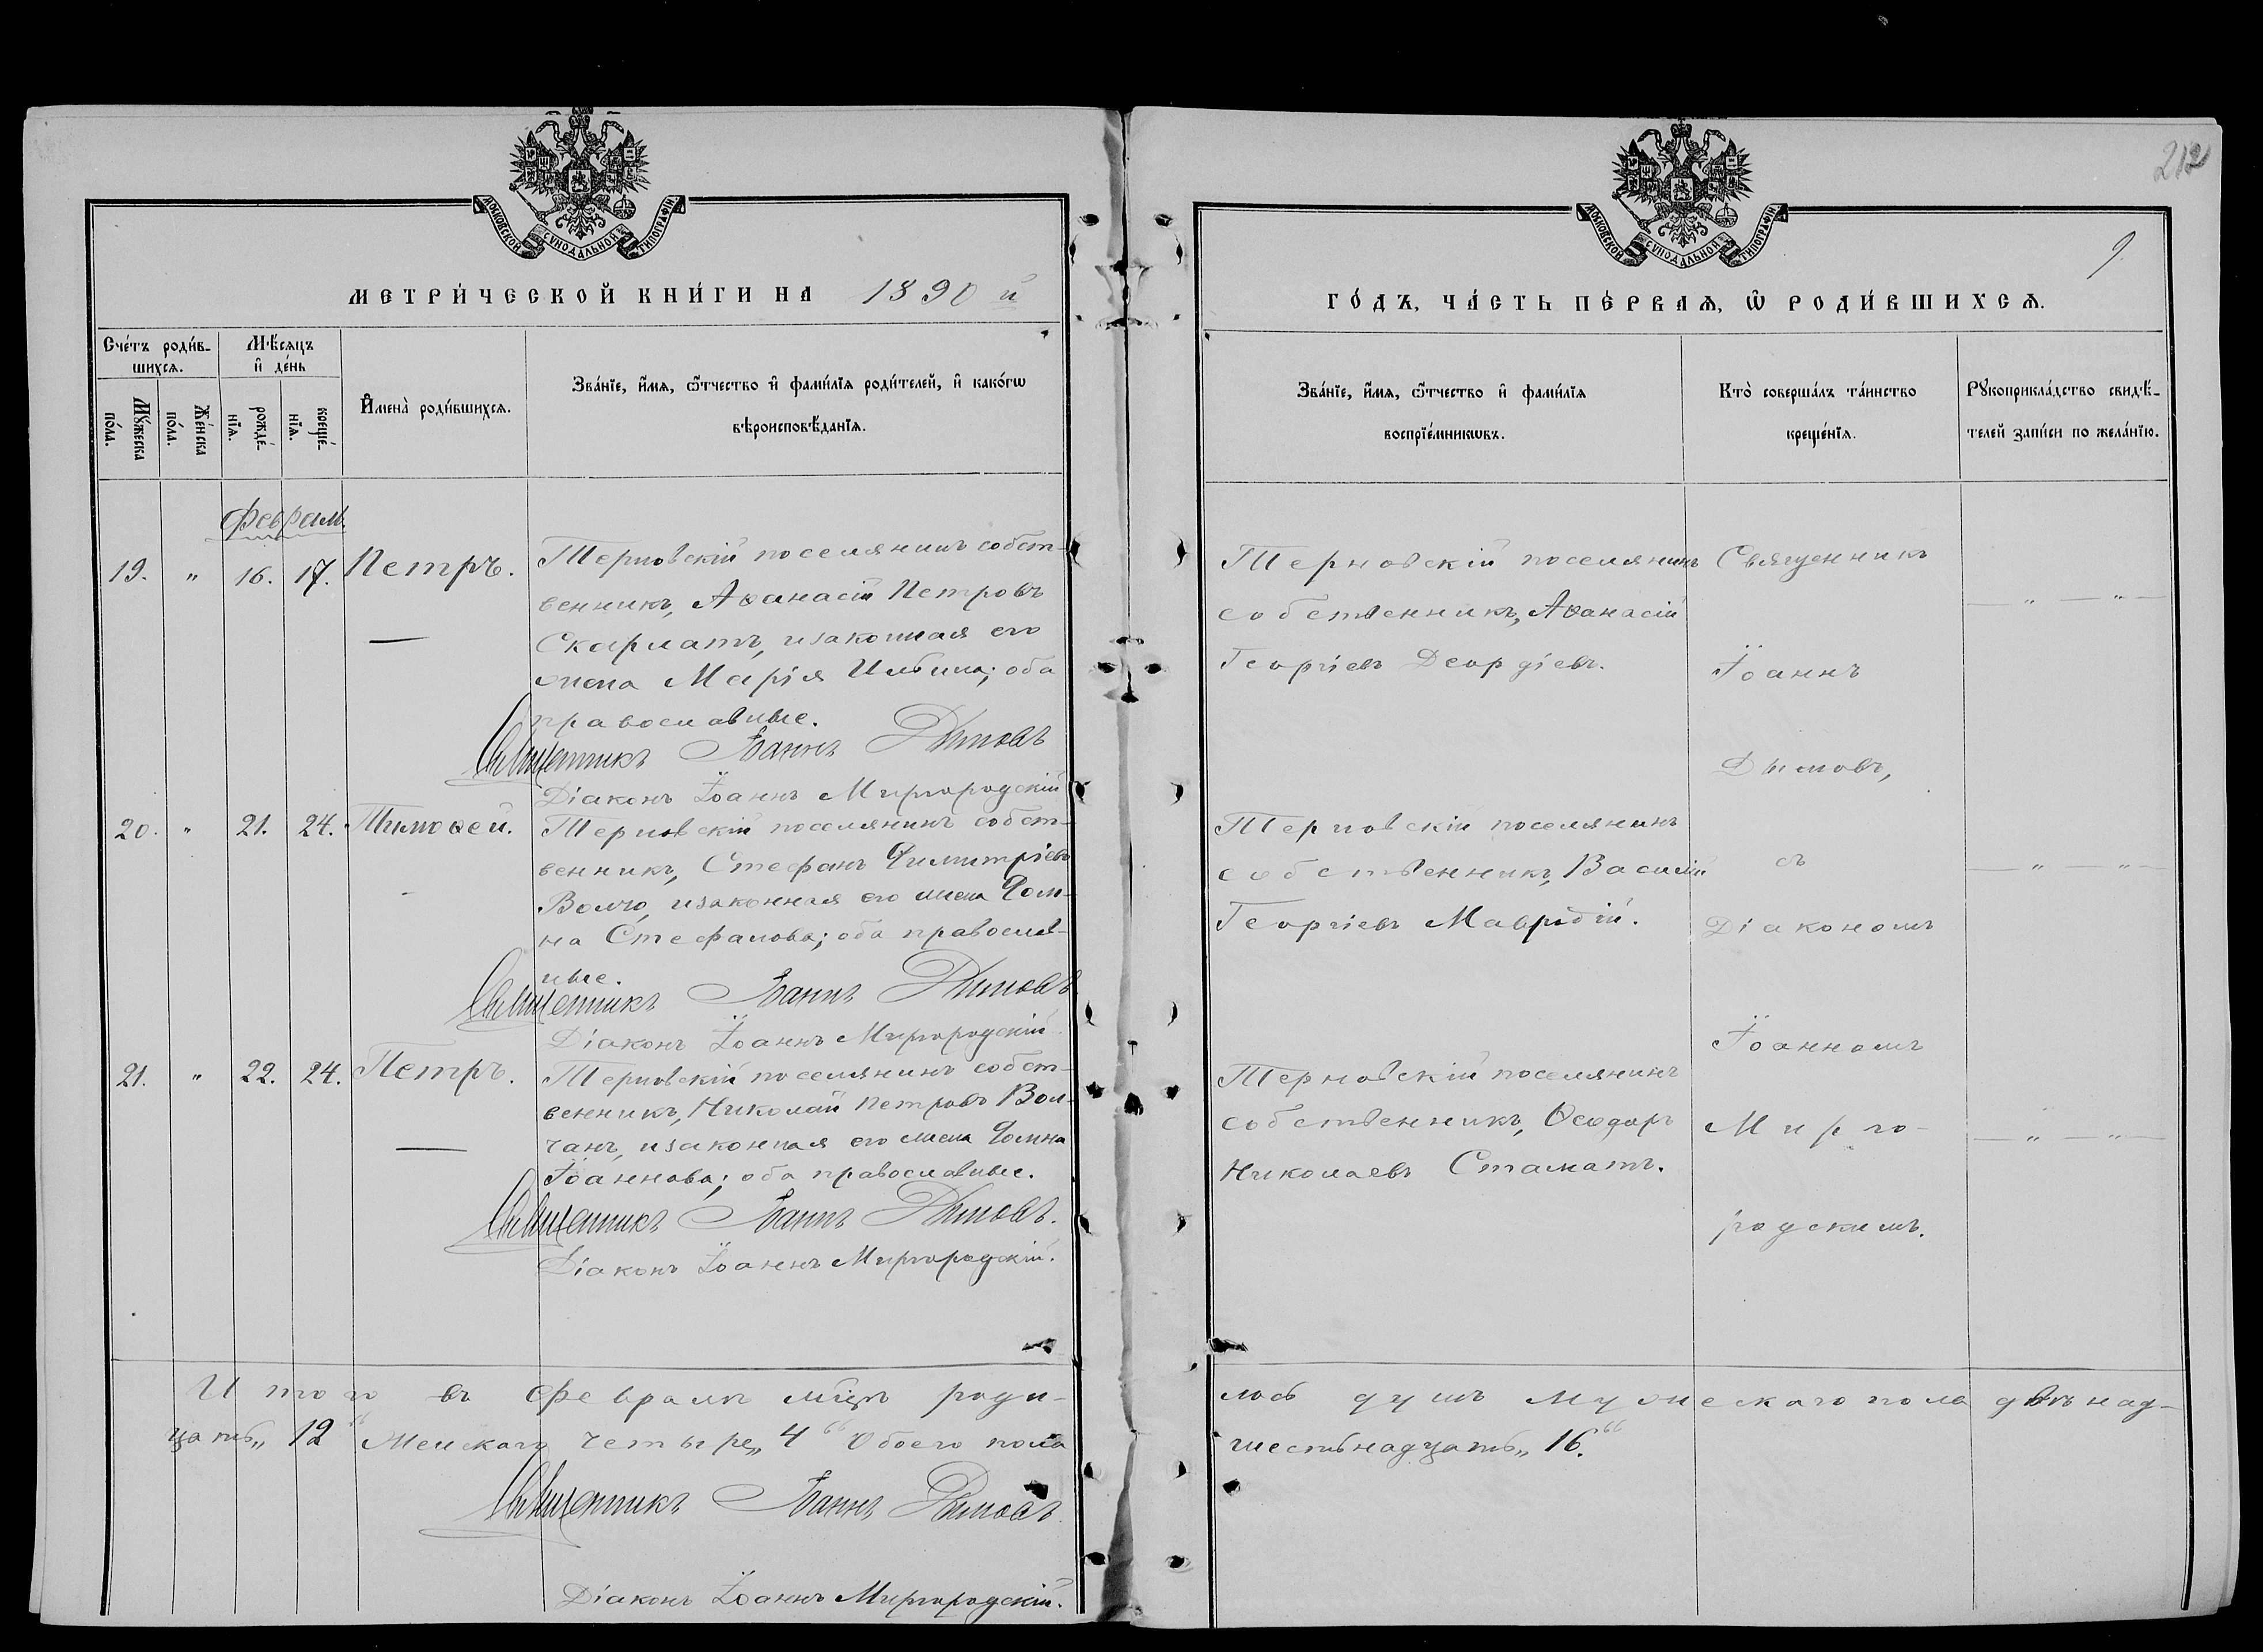 212
9
МОСКОВСКОЙ СѴНОДАЛЬНОЙ ТИПОГРАФІИ
МОСКОВСКОЙ СѴНОДАЛЬНОЙ ТИПОГРАФІИ
МЕТРИ́ЧЕСКОЙ КНИ́ГИ НА 1890 й
ГО́ДЪ, ЧА́СТЬ ПЕ́РВАѦ, Ѿ РОДИ́ВШИХСѦ.
Сче́тъ роди́в-
шихсѧ.
Мꙋ́жеска
по́ла.
Же́нска
по́ла.
Мѣ́сѧцъ
и҆ де́нь
рожде́-
нїѧ.
креще́-
нїѧ.
И҆мена̀ роди́вшихсѧ.
Зва́нїе, и҆́мѧ, ѻ҆́тчество и҆ фами́лїѧ роди́телей, и҆ како́гѡ
вѣроисповѣ́данїѧ.
Зва́нїе, и҆́мѧ, ѻ҆́тчество и҆ фами́лїѧ
воспрїе́мникѡвъ.
Кто̀ соверша́лъ та́инство
креще́нїѧ.
Рꙋкоприкла́дство свидѣ́-
телей за́писи по жела́нїю.
Февраль
19. " 16. 17. Петръ.
Терновскій поселянинъ собст-
венникъ, Аѳанасій Петровъ
Скарлатъ, и законная его
жена Марія Ильина; оба
православные.
Священникъ Іоаннъ Дымовъ
Діаконъ Іоаннъ Миргородскій
Терновскій поселянинъ
собственникъ, Аѳанасій
Георгіевъ Деордіевъ.
Священникъ
Іоаннъ
Дымовъ,
съ
Діакономъ
Іоанномъ
Мирго-
родскимъ.
— " — " —
20. " 21. 24. Тимоѳей.
Терновскій поселянинъ собст-
венникъ, Стефанъ Димитріевъ
Волчо, и законная его жена Дом-
на Стефанова; оба православ-
ные.
Священникъ Іоаннъ Дымовъ
Діаконъ Іоаннъ Миргородскій
Терновскій поселянинъ
собственникъ, Василій
Георгіевъ Мавродій.
— " — " —
21. " 22. 24. Петръ.
Терновскій поселянинъ собст-
венникъ, Николай Петровъ Вол-
чанъ, и законная его жена Домна
Іоаннова; оба православные.
Священникъ Іоаннъ Дымовъ.
Діаконъ Іоаннъ Миргородскій.
Терновскій поселянинъ
собственникъ, Ѳеодоръ
Николаевъ Стаматъ.
— " — " —
Итого въ Февралѣ мцѣ роди-лось душъ мужескаго пола двѣнад-
цать „12“ Женскаго четыре „4“ Обоего пола шестьнадцать „16.“
Священникъ Іоаннъ Дымовъ.
Діаконъ Іоаннъ Миргородскій.